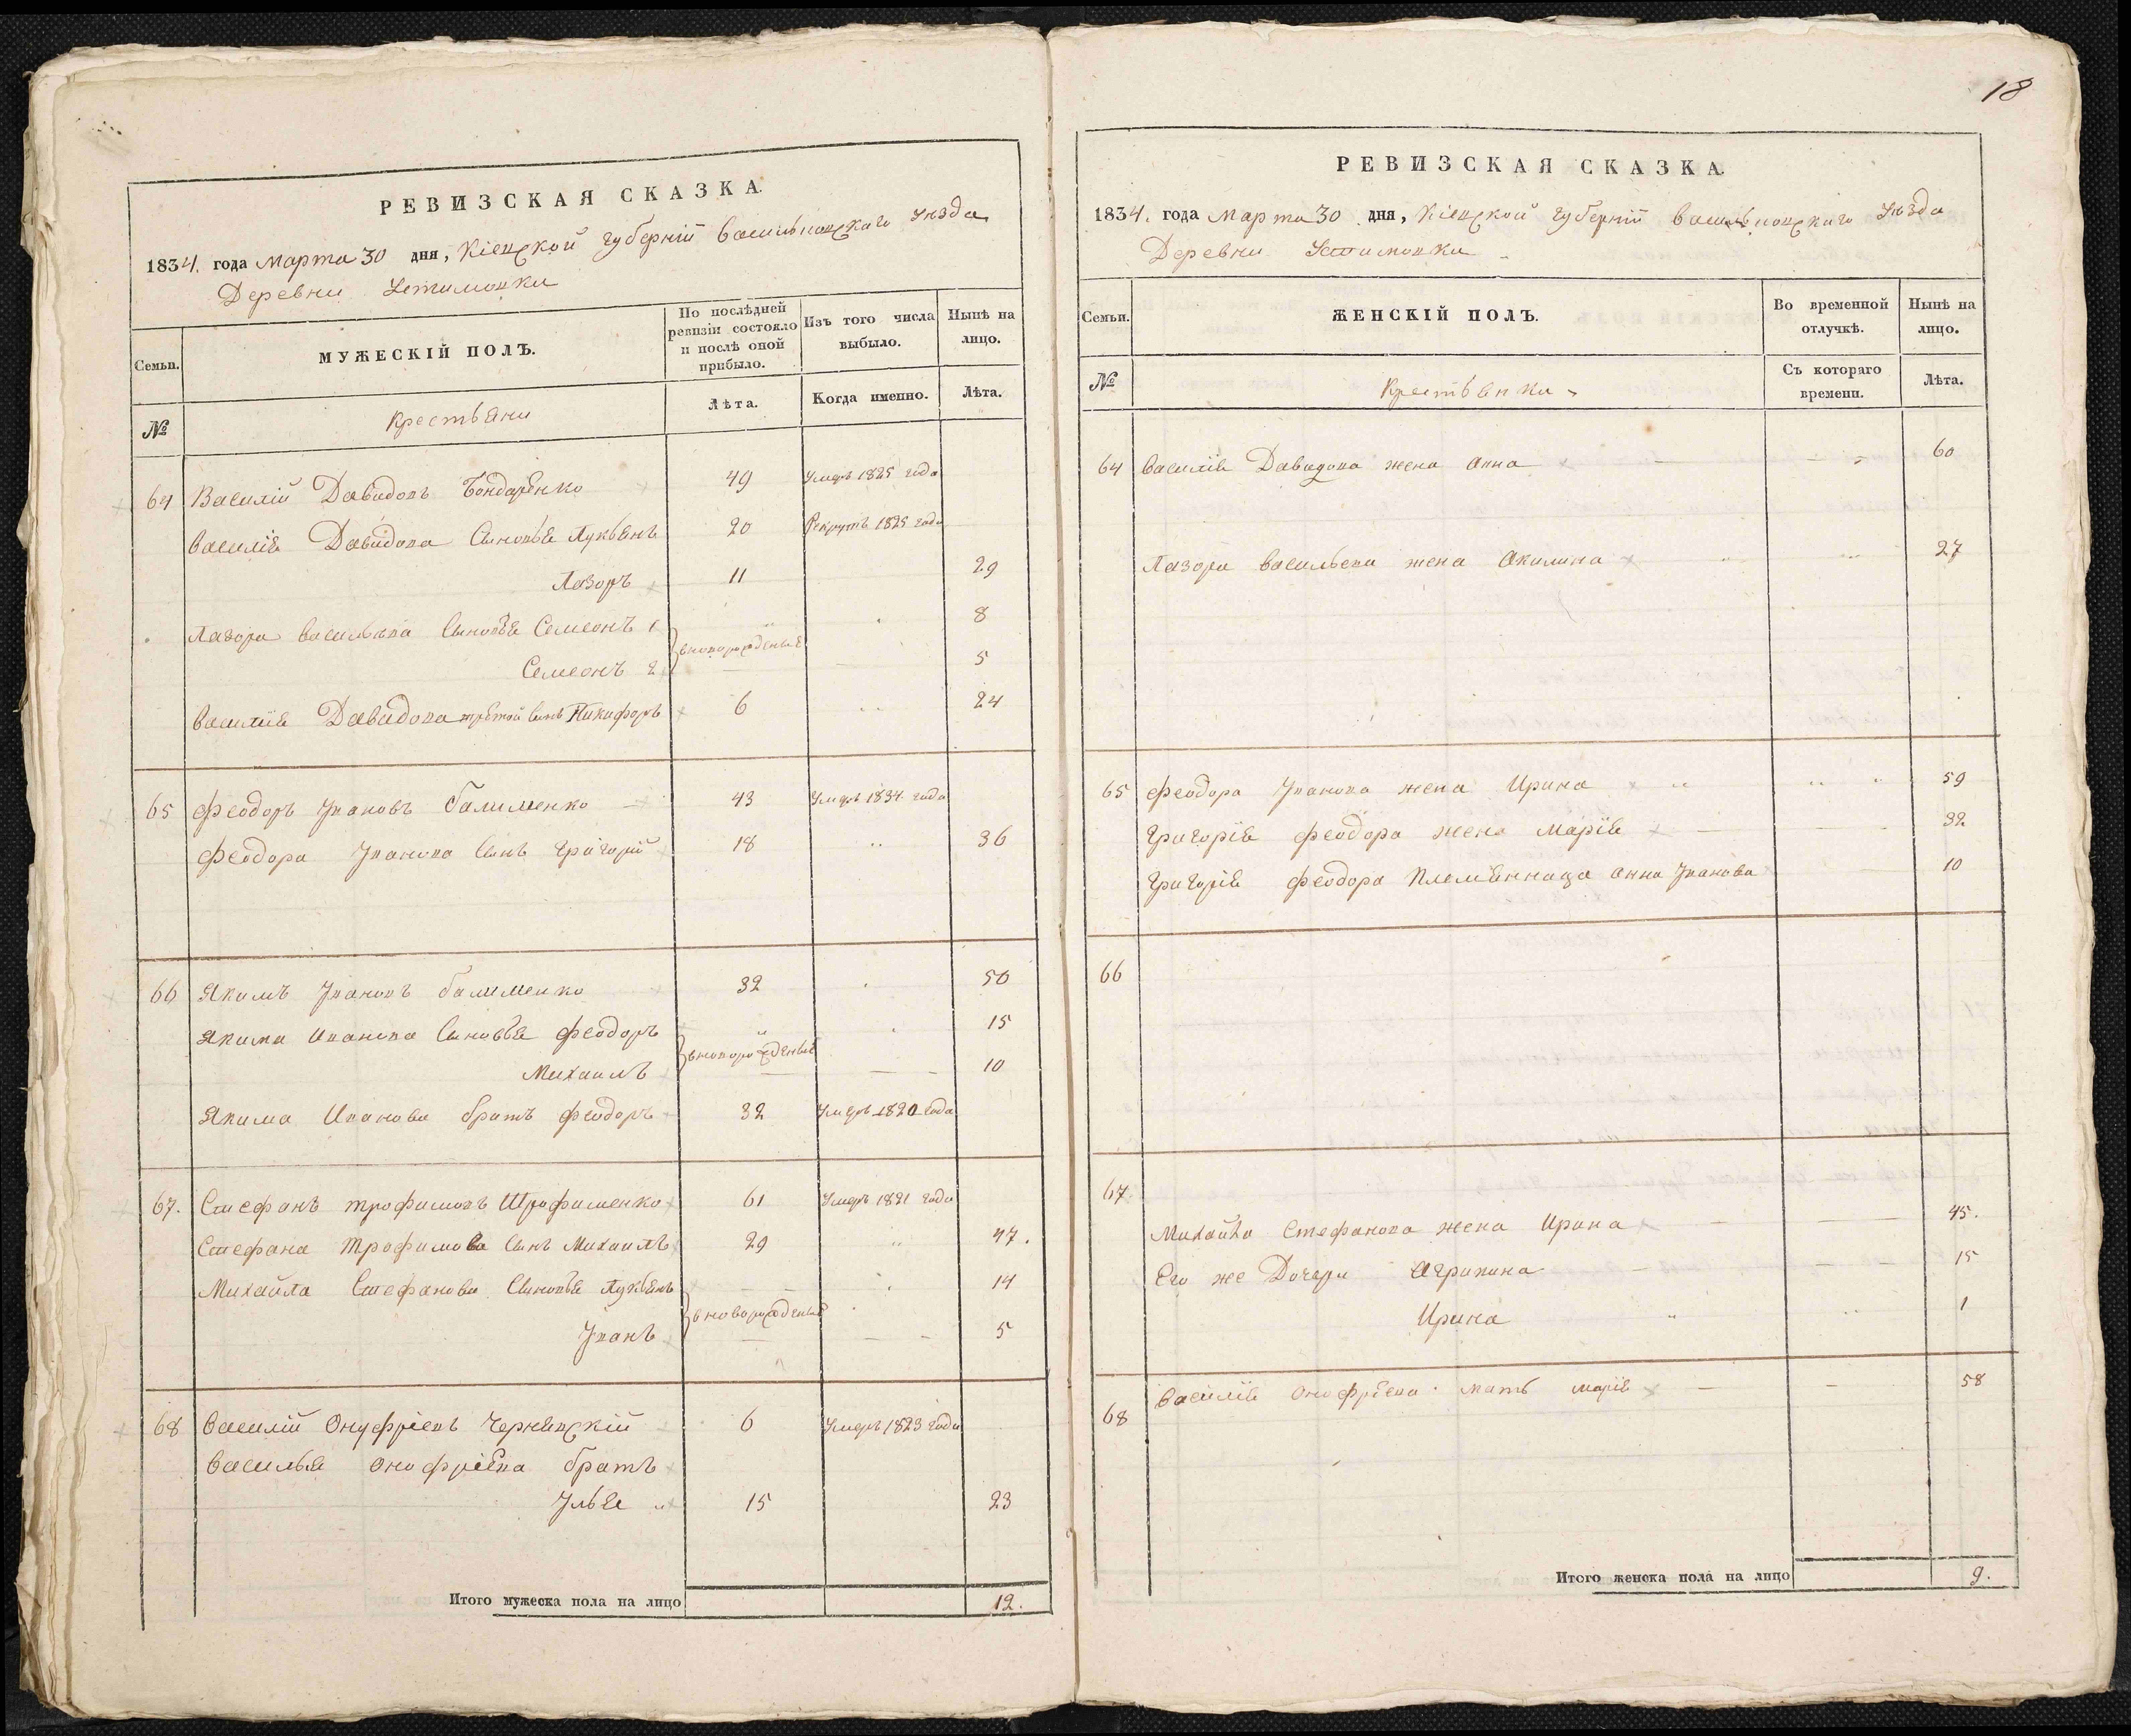 18
РЕВИЗСКАЯ СКАЗКА.
1834. года Марта 30 дня, Кіевской Губерніи Васильковскаго Уѣзда
Деревни Устимовки
Семьи.
МУЖЕСКІЙ ПОЛЪ.
По послѣдней ревизіи состояло и послѣ оной прибыло.
Изъ того числа выбыло.
Нынѣ на лицо.
№
Крестьяни
Лѣта.
Когда именно.
Лѣта.
64 Василій Давидовъ Бондаренко 49 Умеръ 1825 года
Василія Давидова Сыновья Лукьянъ 20 Рекрутъ 1825 года
Лазоръ 11 29
Лазора Васильева Сыновья Семеонъ 1 8
вноворожденые
Семеонъ 2 5
Василія Давидова третой Сынъ Никифоръ 6 24
65 Феодоръ Ивановъ Балименко 43 Умеръ 1834 года
Феодора Иванова Сынъ Григорій 18 36
66 Якимъ Ивановъ Балименко 32 50
Якима Иванова Сыновья Феодоръ 15
вноворожденые
Михаилъ 10
Якима Иванова братъ Феодоръ 32 Умеръ 1820 года
67. Стефанъ Трофимовъ Трофименко 61 Умеръ 1821 года
Стефана Трофимова Сынъ Михаилъ 29 47.
Михайла Стефанова Сыновья Лукьянъ 14
вноворожденые
Иванъ 5
68 Василій Онуфріевъ Чернявскій 6 Умеръ 1823 года
Василья Онофріева братъ
Илья 15 23
Итого мужеска пола на лицо 12.
РЕВИЗСКАЯ СКАЗКА.
1834. года Марта 30 дня, Кіевской Губерніи Васильковскаго Уѣзда
Деревни Устимовки
Семьи.
ЖЕНСКІЙ ПОЛЪ.
Во временной отлучкѣ.
Нынѣ на лицо.
№
Крестьянки
Съ котораго времени.
Лѣта.
64 Василія Давидова жена Анна 60
Лазора Васильева жена Акилина 27
65 Феодора Иванова жена Ирина 59
Григорія Феодора жена Марія 32
Григорія Феодора Племянница Анна Иванова 10
66
67.
Михайла Стефанова жена Ирина 45.
Его же Дочери Агрипина 15
Ирина 1
68 Василія Онофріева мать Марія 58
Итого женска пола на лицо 9.